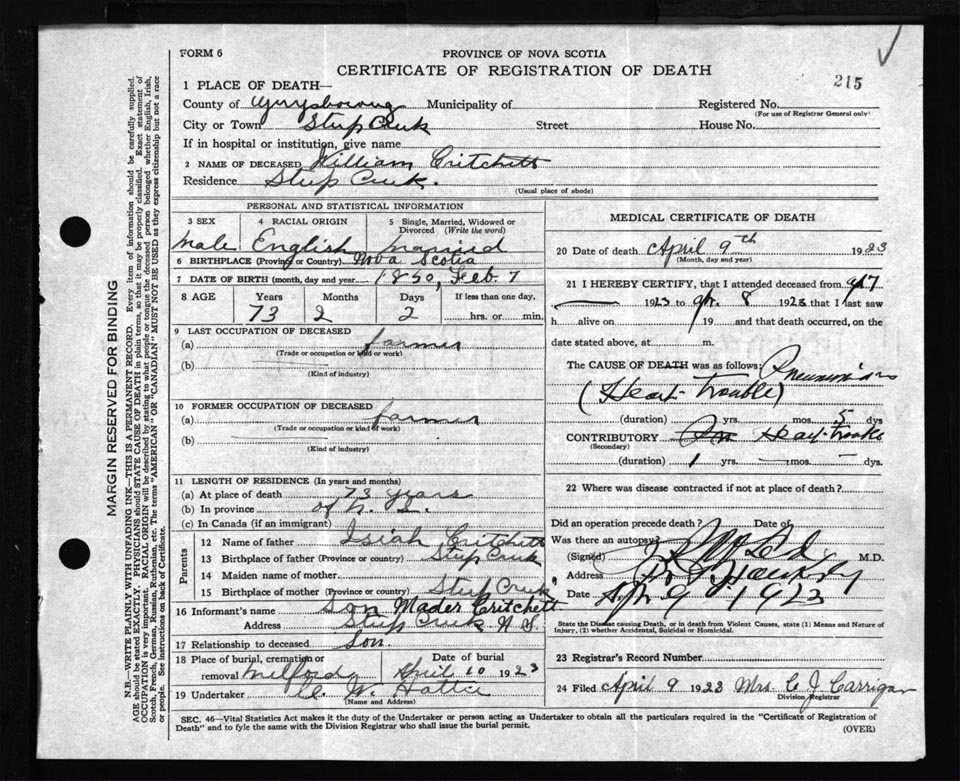 FORM 6
PROVINCE OF NOVA SCOTIA
CERTIFICATE OF REGISTRATION OF DEATH
215
1 PLACE OF DEATH—
County of Municipality of Registered No.
(For use of Registrar General only)
City or Town Street House No.
If in hospital or institution, give name
2 NAME OF DECEASED William Critchett
Residence
(Usual place of abode)
PERSONAL AND STATISTICAL INFORMATION
3 SEX 4 RACIAL ORIGIN 5 Single, Married, Widowed or Divorced (Write the word)
Male English Married
6 BIRTHPLACE (Province or Country) Nova Scotia
7 DATE OF BIRTH (month, day and year 1850, Feb. 7
8 AGE Years Months Days If less than one day,
73 2 2 hrs. or min.
9 LAST OCCUPATION OF DECEASED
(a) farmer
(Trade or occupation or kind or work)
(b)
(Kind of industry)
10 FORMER OCCUPATION OF DECEASED
(a) farmer
(Trade or occupation or kind of work)
(b)
(Kind of industry)
11 LENGTH OF RESIDENCE (In years and months)
(a) At place of death 73 years
(b) In province of N. S.
(c) In Canada (if an immigrant)
Parents
12 Name of father Isiah Critchett
13 Birthplace of father (Province or country)
14 Maiden name of mother
15 Birthplace of mother (Province or country)
16 Informant's name Son Mader Critchett
Address N S.
17 Relationship to deceased Son.
18 Place of burial, cremation or removal Milford Date of burial April 10 1923
19 Undertaker W.
(Name and Address)
MEDICAL CERTIFICATE OF DEATH
20 Date of death April 9th 1923
(Month, day and year)
21 I HEREBY CERTIFY, that I attended deceased from 7
1923 to Apr. 8 1923 that I last saw
h alive on 19 and that death occurred, on the
date stated above, at m.
The CAUSE OF DEATH was as follows: Pneumonia
(Heart Trouble)
(duration) yrs. mos. 5 dys
CONTRIBUTORY
(Secondary)
(duration) 1 yrs. — mos. — dys.
22 Where was disease contracted if not at place of death?
Did an operation precede death? Date of
Was there an autopsy?
(Signed) M.D.
Address
Date Apr 9 1923
State the Disease causing Death, or in death from Violent Causes, state (1) Means and Nature of
Injury, (2) whether Accidental, Suicidal or Homicidal.
23 Registrar's Record Number
24 Filed April 9 1923 Mrs. C J Carrigan
Division Registrar
SEC. 46—Vital Statistics Act makes it the duty of the Undertaker or person acting as Undertaker to obtain all the particulars required in the "Certificate of Registration of
Death" and to fyle the same with the Division Registrar who shall issue the burial permit.
(OVER)
MARGIN RESERVED FOR BINDING
N.B.—WRITE PLAINLY WITH UNFADING INK—THIS IS A PERMANENT RECORD. Every item of information should be carefully supplied.
AGE should be stated EXACTLY. PHYSICIANS should STATE CAUSE OF DEATH in plain terms, so that it may be properly classified. Exact statement of
OCCUPATION is very important. RACIAL ORIGIN will be described by stating to what people or tongue the deceased person belonged whether English, Irish,
Scotch, French, German, Russian, Ruthenian, etc. The terms "AMERICAN" OR "CANADIAN" MUST NOT BE USED as they express citizenship but not a race
or people. See instructions on back of Certificate.